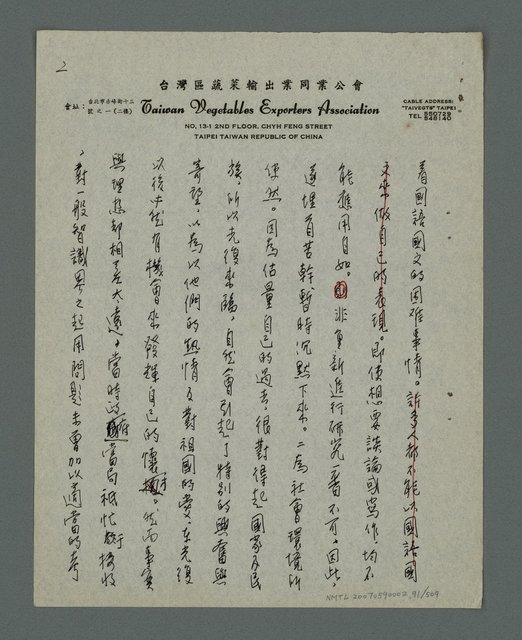 2
台灣區蔬菜輸出業同業公會
會址：台北市赤峰街十三號之一(二樓)
Taiwan Vegetables Exporters Association
CABLE ADDRESS:
"TAIVEGTS" TAIPEI
TEL 550729
546140
NO, 13-1 2ND FLOOR, CHYH FENG STREET
TAIPEI TAIWAN REPUBLIC OF CHINA
着國語國文的困难事情。許多人都不能以國語國
文來做自己的表現。即使想要談論或寫作，均不
能應用自如。非重新進行研究一番不可，因此，
遂埋首苦幹暫時沉默下來。二為社會環境所
使然。因為估量自己的過去，很對得起國家及民
族，所以光復來臨，自然會引起了特別的興奮與
寄望，以為以他們的熱情及對祖國的愛，在光復
以後必然有機會來發揮自己的懷。然而事實
與理想却相差太遠。當時的政府當局祗忙於接收
，對一般智識界之起用問題未曾加以適當的考
NMTL 20070590002, 91/509